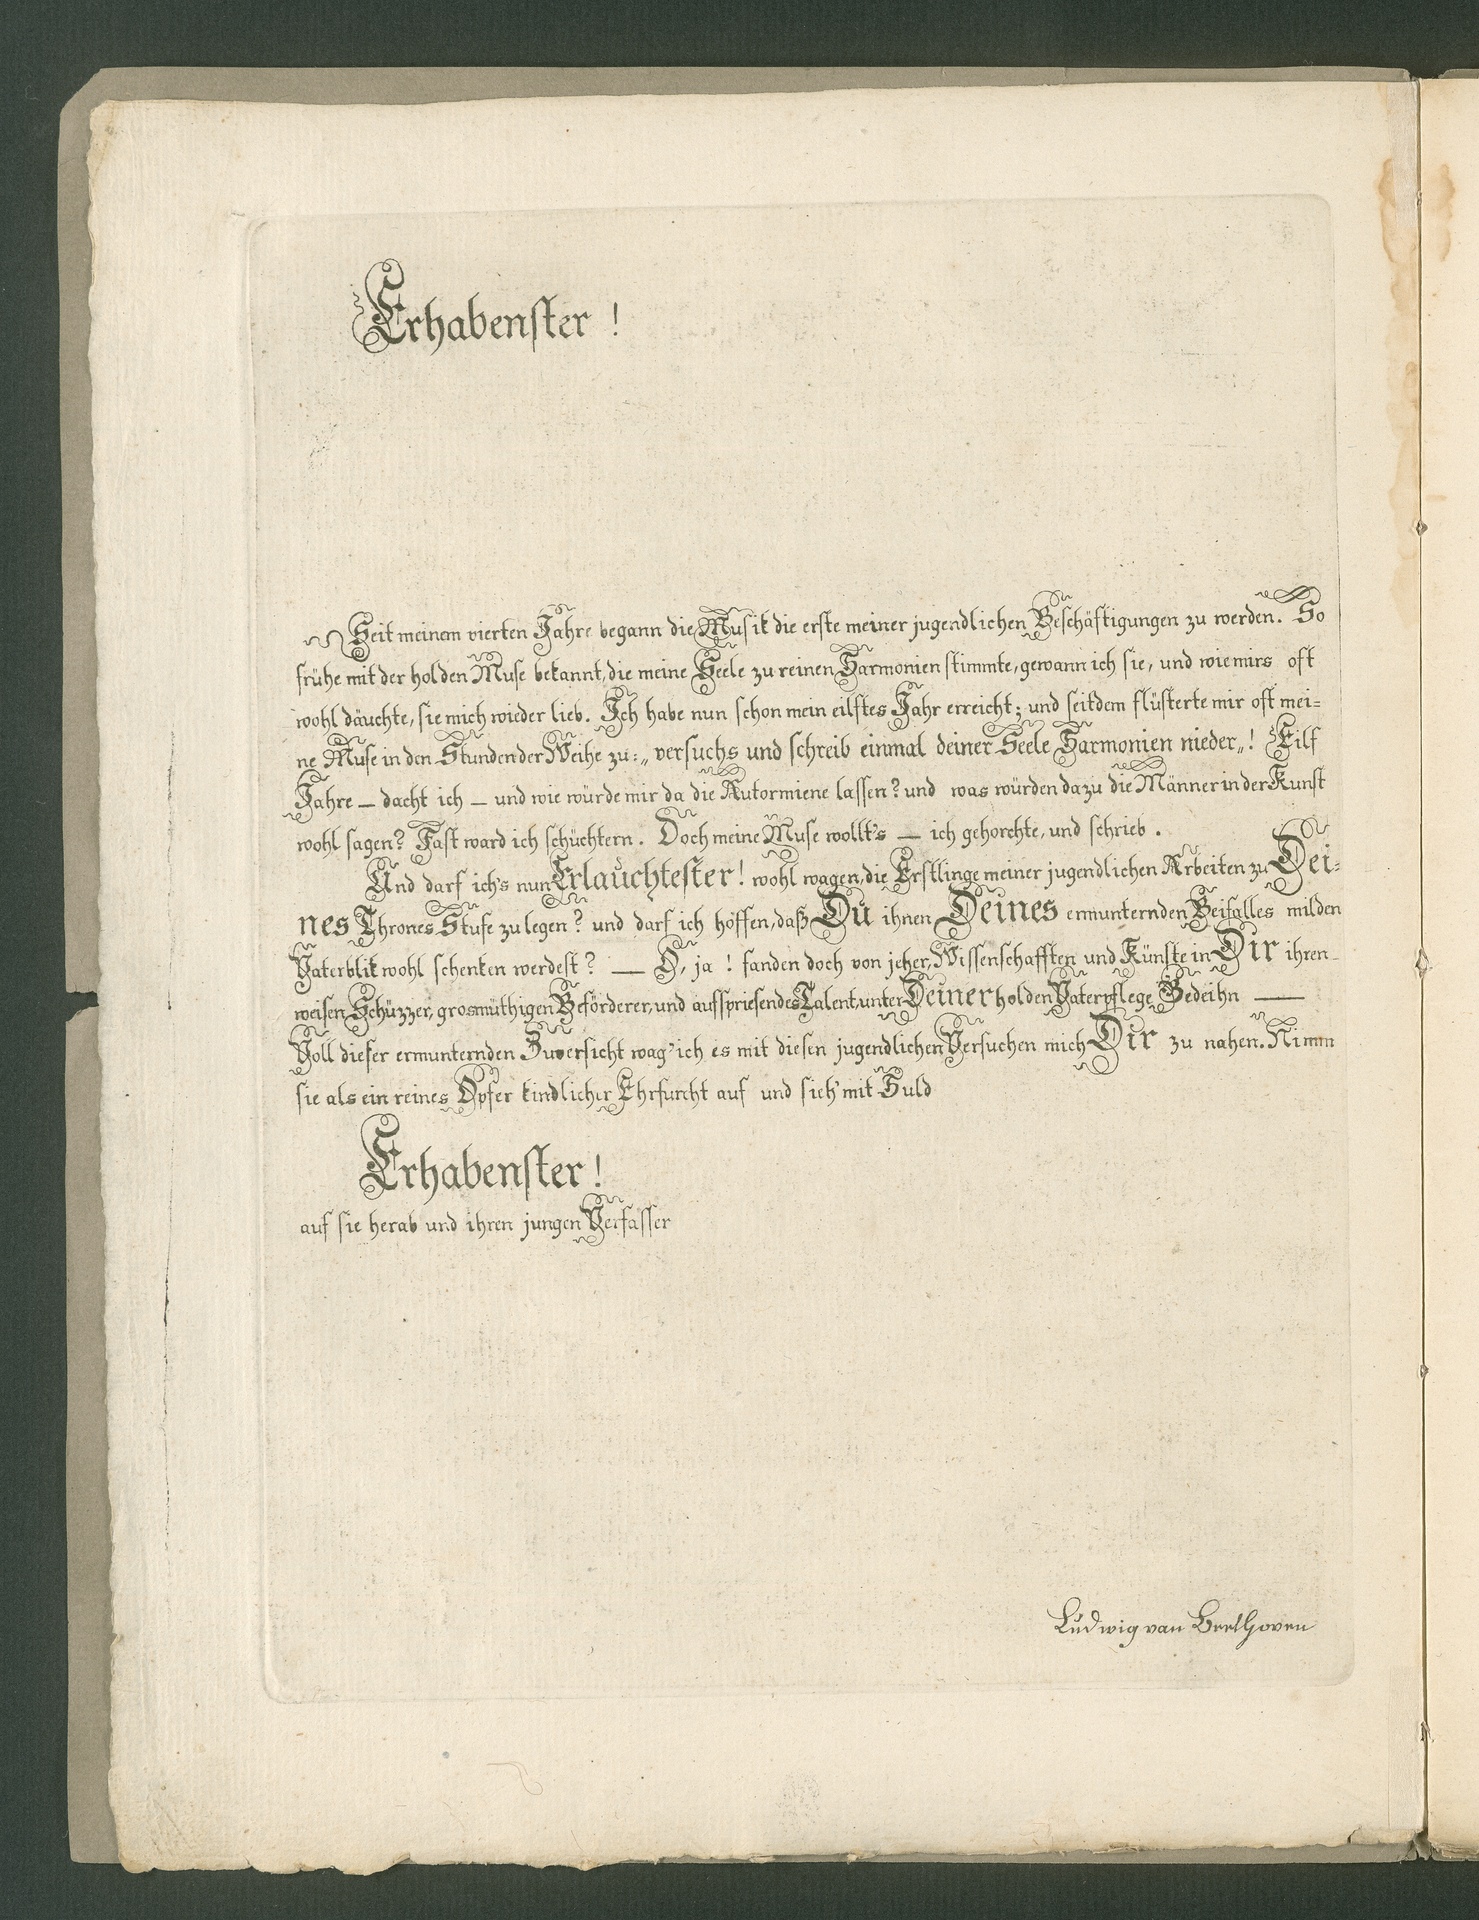 Erhabenster !
Seit meinem vierten Jahre begann die Musik die erste meiner jugendlichen Beschäftigungen zu werden. So
frühe mit der holden Muse bekannt, die meine Seele zu reinen Harmonien stimmte, gewann ich sie, und wie mirs oft
wohl däuchte, sie mich wieder lieb. Ich habe nun schon mein eilftes Jahr erreicht; und seitdem flüsterte mir oft mei=
ne Muse in den Stunden der Weihe zu: „versuchs und schreib einmal deiner Seele Harmonien nieder„! Eilf
Jahre — dacht ich — und wie würde mir da die Autormiene lassen? und was würden dazu die Männer in der Kunst
wohl sagen? Fast ward ich schüchtern. Doch meine Muse wollt's — ich gehorchte, und schrieb.
Und darf ich's nun Erlauchtester! wohl wagen, die Erstlinge meiner jugendlichen Arbeiten zu Dei=
nes Thrones Stufe zu legen? und darf ich hoffen, daß Du ihnen Deines ermunternden Beifalles milden
Vaterblik wohl schenken werdest? — O, ja ! fanden doch von jeher, Wissenschafften und Künste in Dir ihren
weisen Schüzzer, grosmüthigen Beförderer, und aufspriesendes Talent, unter Deiner holden Vaterpflege Gedeihn —
Voll dieser ermunternden Zuversicht wag' ich es mit diesen jugendlichen Versuchen mich Dir zu nahen. Nimm
sie als ein reines Opfer kindlicher Ehrfurcht auf und sieh' mit Huld
Erhabenster !
auf sie herab und ihren jungen Verfasser
Ludwig van Beethoven